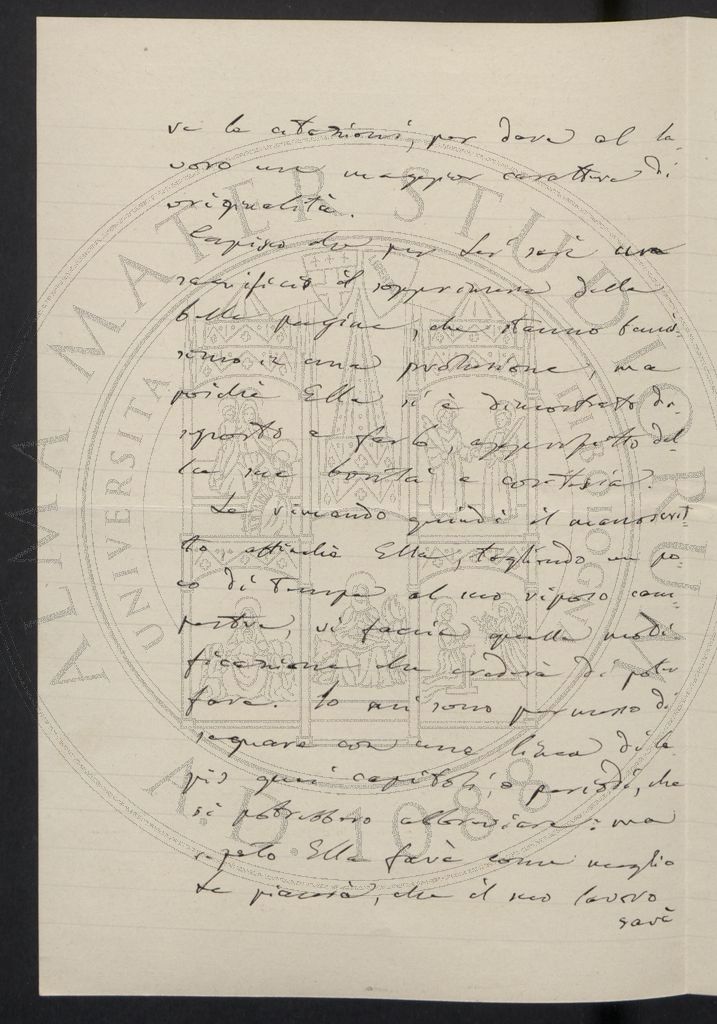 re le citazioni, per dare al la-
voro un maggior carattere di
originalità.
Capisco che per Lei sarà un
sacrificio il sopprimere delle
belle pagine, che stanno benis-
simo in una prolusione, ma
poiché Ella si è dimostrato di-
sposto a farlo, approfitto del-
la sua bontà e cortesia.
Le rimando quindi il manoscrit-
to affinché Ella, togliendo un po-
co di tempo al suo riposo cam-
pestre, vi faccia quelle modi
ficazioni che crederà di poter
fare. Io mi sono permesso di
segnare con una linea di la-
pis quei capitoli, o periodi, che
si potrebbero abbreviare: ma
ripeto Ella farà come meglio
Le piacerà, che il suo lavoro
sarà
ALMA MATER STUDIORUM
UNIVERSITÀ
A.D. 1088